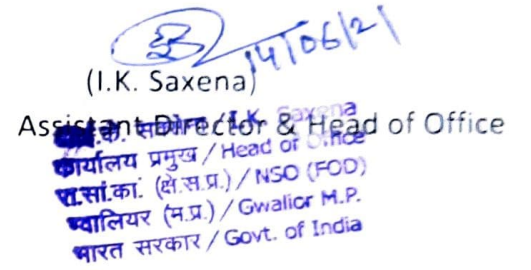 14/06/21
(I.K. Saxena)
Assistant Director & Head of Office
के. सक्सेना / I.K. Saxena
कार्यालय प्रमुख / Head of Office
रा.सां.का. (क्षे.स.प्र.) / NSO (FOD)
ग्वालियर (म.प्र.) / Gwalior M.P.
भारत सरकार / Govt. of India